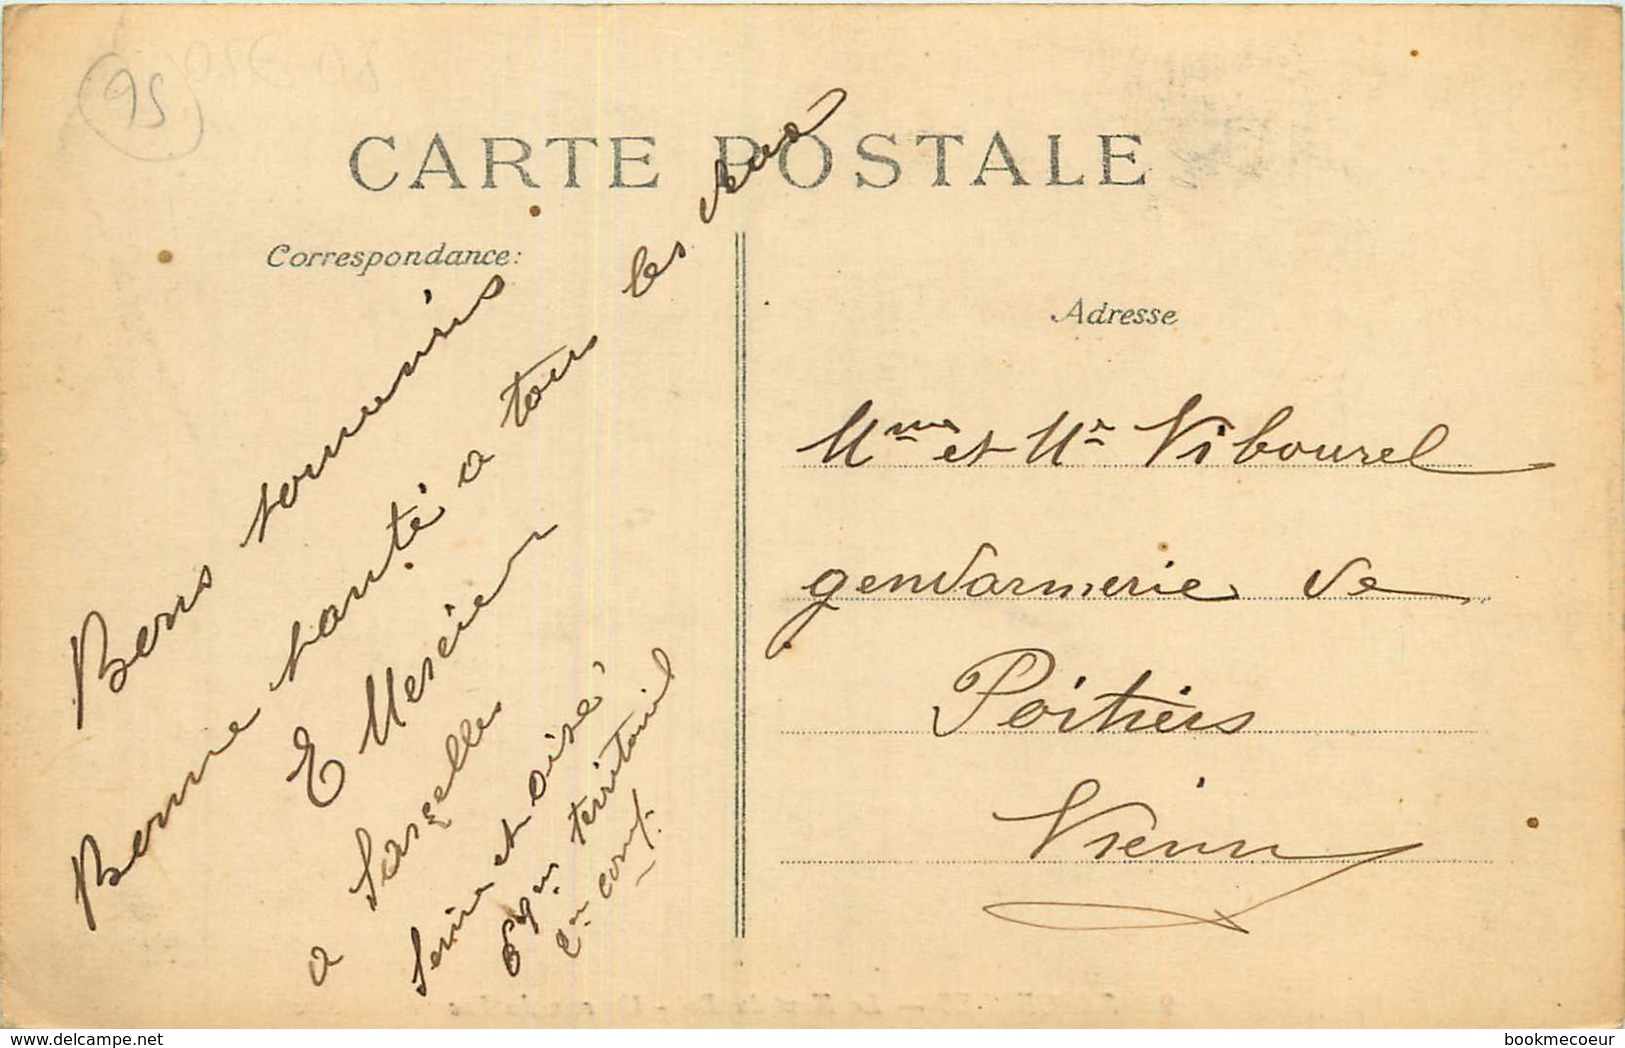 95
CARTE POSTALE
Correspondance:
Bons souvenirs
Bonne santé a tous les deux
E Mercier
a Sarcelles
Seine et Oise
69me territorial
2me comp.
Adresse
Mme et Mr Vibourel
gendarmerie de
Poitiers
Vienne
bookmecoeur